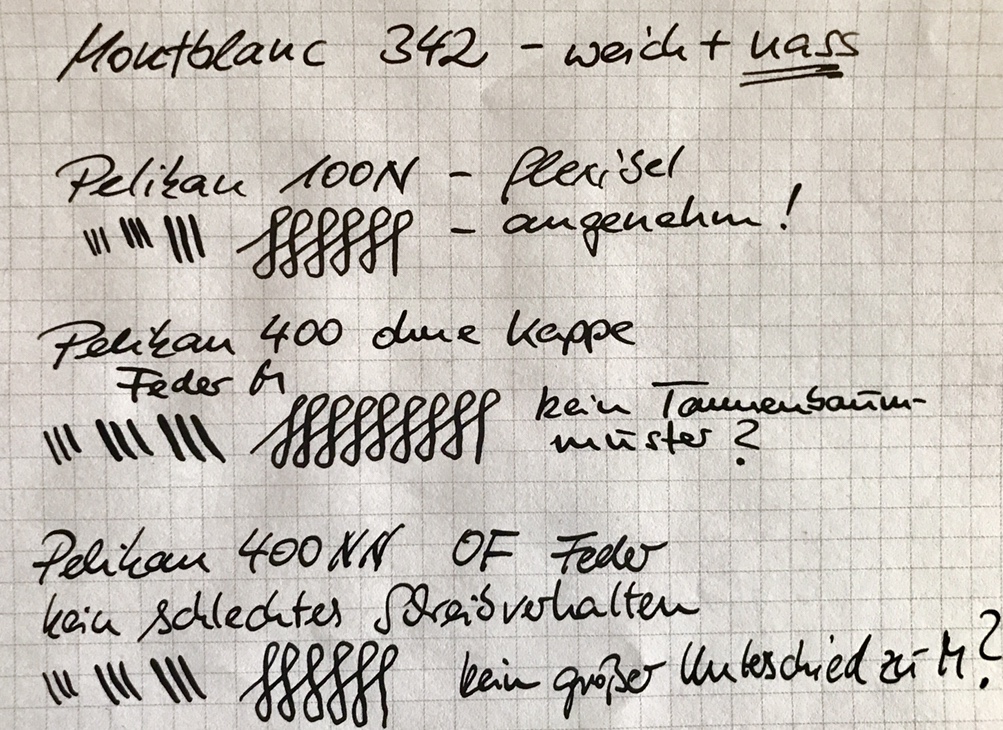 Montblanc 342 - weich + nass
Pelikan 100N - flexibel
- angenehm!
Pelikan 400 ohne Kappe
Feder M
kein Tannenbaum-
muster?
Pelikan 400NN OF Feder
kein schlechtes Schreibverhalten
kein großer Unterschied zu M?